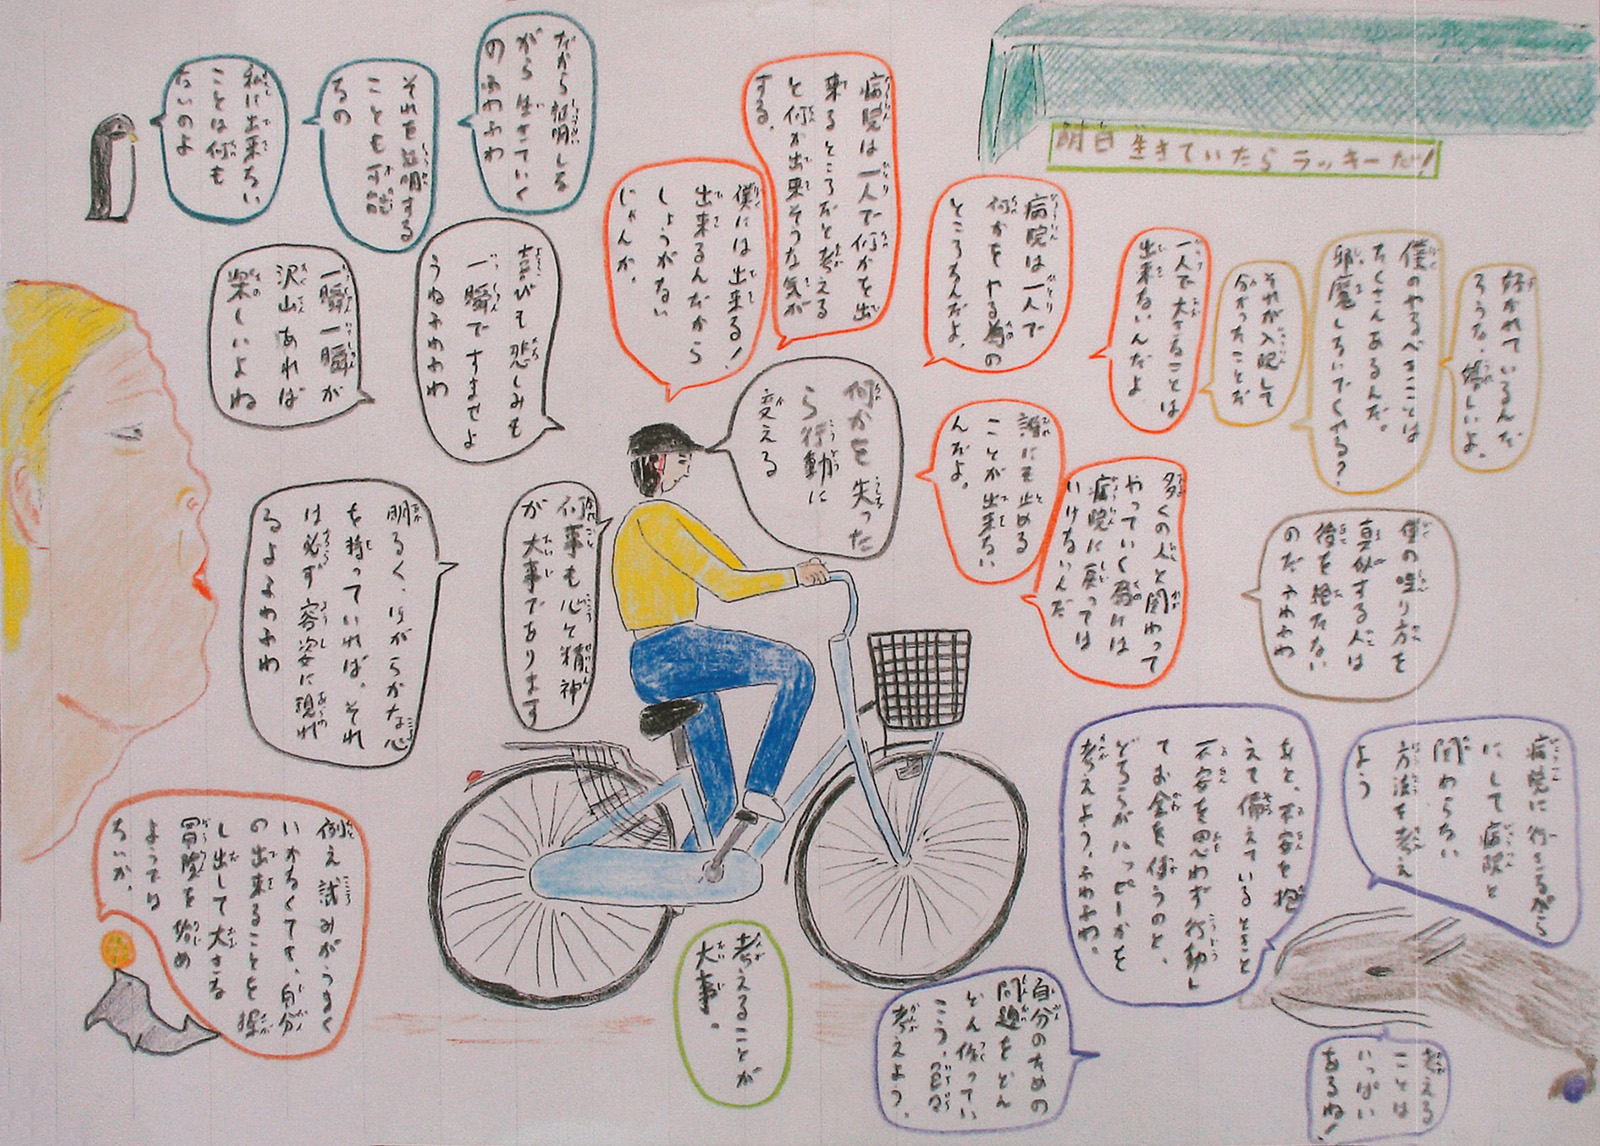 明日生きていたらラッキーだ!
好かれているんだ
ろうな、嬉しいよ。
僕のやるべきことは
たくさんあるんだ。
邪魔しないでくれる?
それが入院して
分かったことだ
一人で大きなことは
出来ないんだよ
病院は一人で
何かをやる為の
ところなんだよ。
病院は一人で何かを出
来るところだと考える
と何か出来そうな気が
する。
僕には出来る!
出来るんだから
しょうがない
じゃんか。
だから証明しな
がら生きていく
のふわふわ
それを証明する
ことも可能
なの
私に出来ない
ことは何も
ないのよ
喜びも悲しみも
一瞬ですませよ
うねふわふわ
一瞬一瞬が
沢山あれば
楽しいよね
何かを失った
ら行動に
変える
誰にも止める
ことが出来ない
んだよ。
多くの人と関わって
やっていく為には
病院に戻っては
いけないんだ
僕の唾り方を
真似する人は
後を絶たない
のだふわふわ
何事も心と精神
が大事であります
明るく、ほがらかな心
を持っていれば、それ
は必ず容姿に現れ
るよふわふわ
病院に行きながら
にして病院と
関わらない
方法を考え
よう
あと、不安を抱
えて備えているときと
不安を思わず行動し
てお金を使うのと、
どちらがハッピーかを
考えよう、ふわふわ。
例え試みがうまく
いかなくても、自分
の出来ることを探
し出して大きな
冒険を始め
ようでは
ないか。
考えることが
大事。
自分のための
問題をどん
どん作ってい
こう、
考えよう。
考える
ことは
いっぱい
あるね!